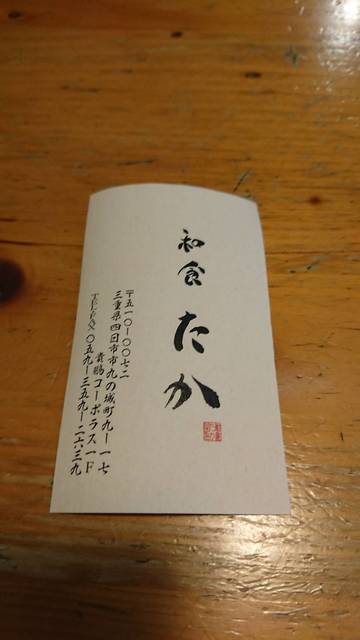 和食
たか
〒五一〇ー〇〇七二
三重県四日市市九の城町九ー一七
貴鵬コーポラス一F
TEL・FAX 〇五九ー三五九ー二六三九